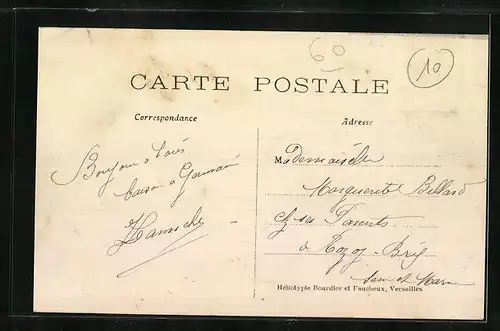 60
10
CARTE POSTALE
Correspondance
Adresse
Bonjour à tous
baiser à Germaine
Mademoiselle
Marguerite Billard
chez ses Parents
à Rozoy-Brie
Seine et Marne
Héliotypie Bourdier et Faucheux, Versailles